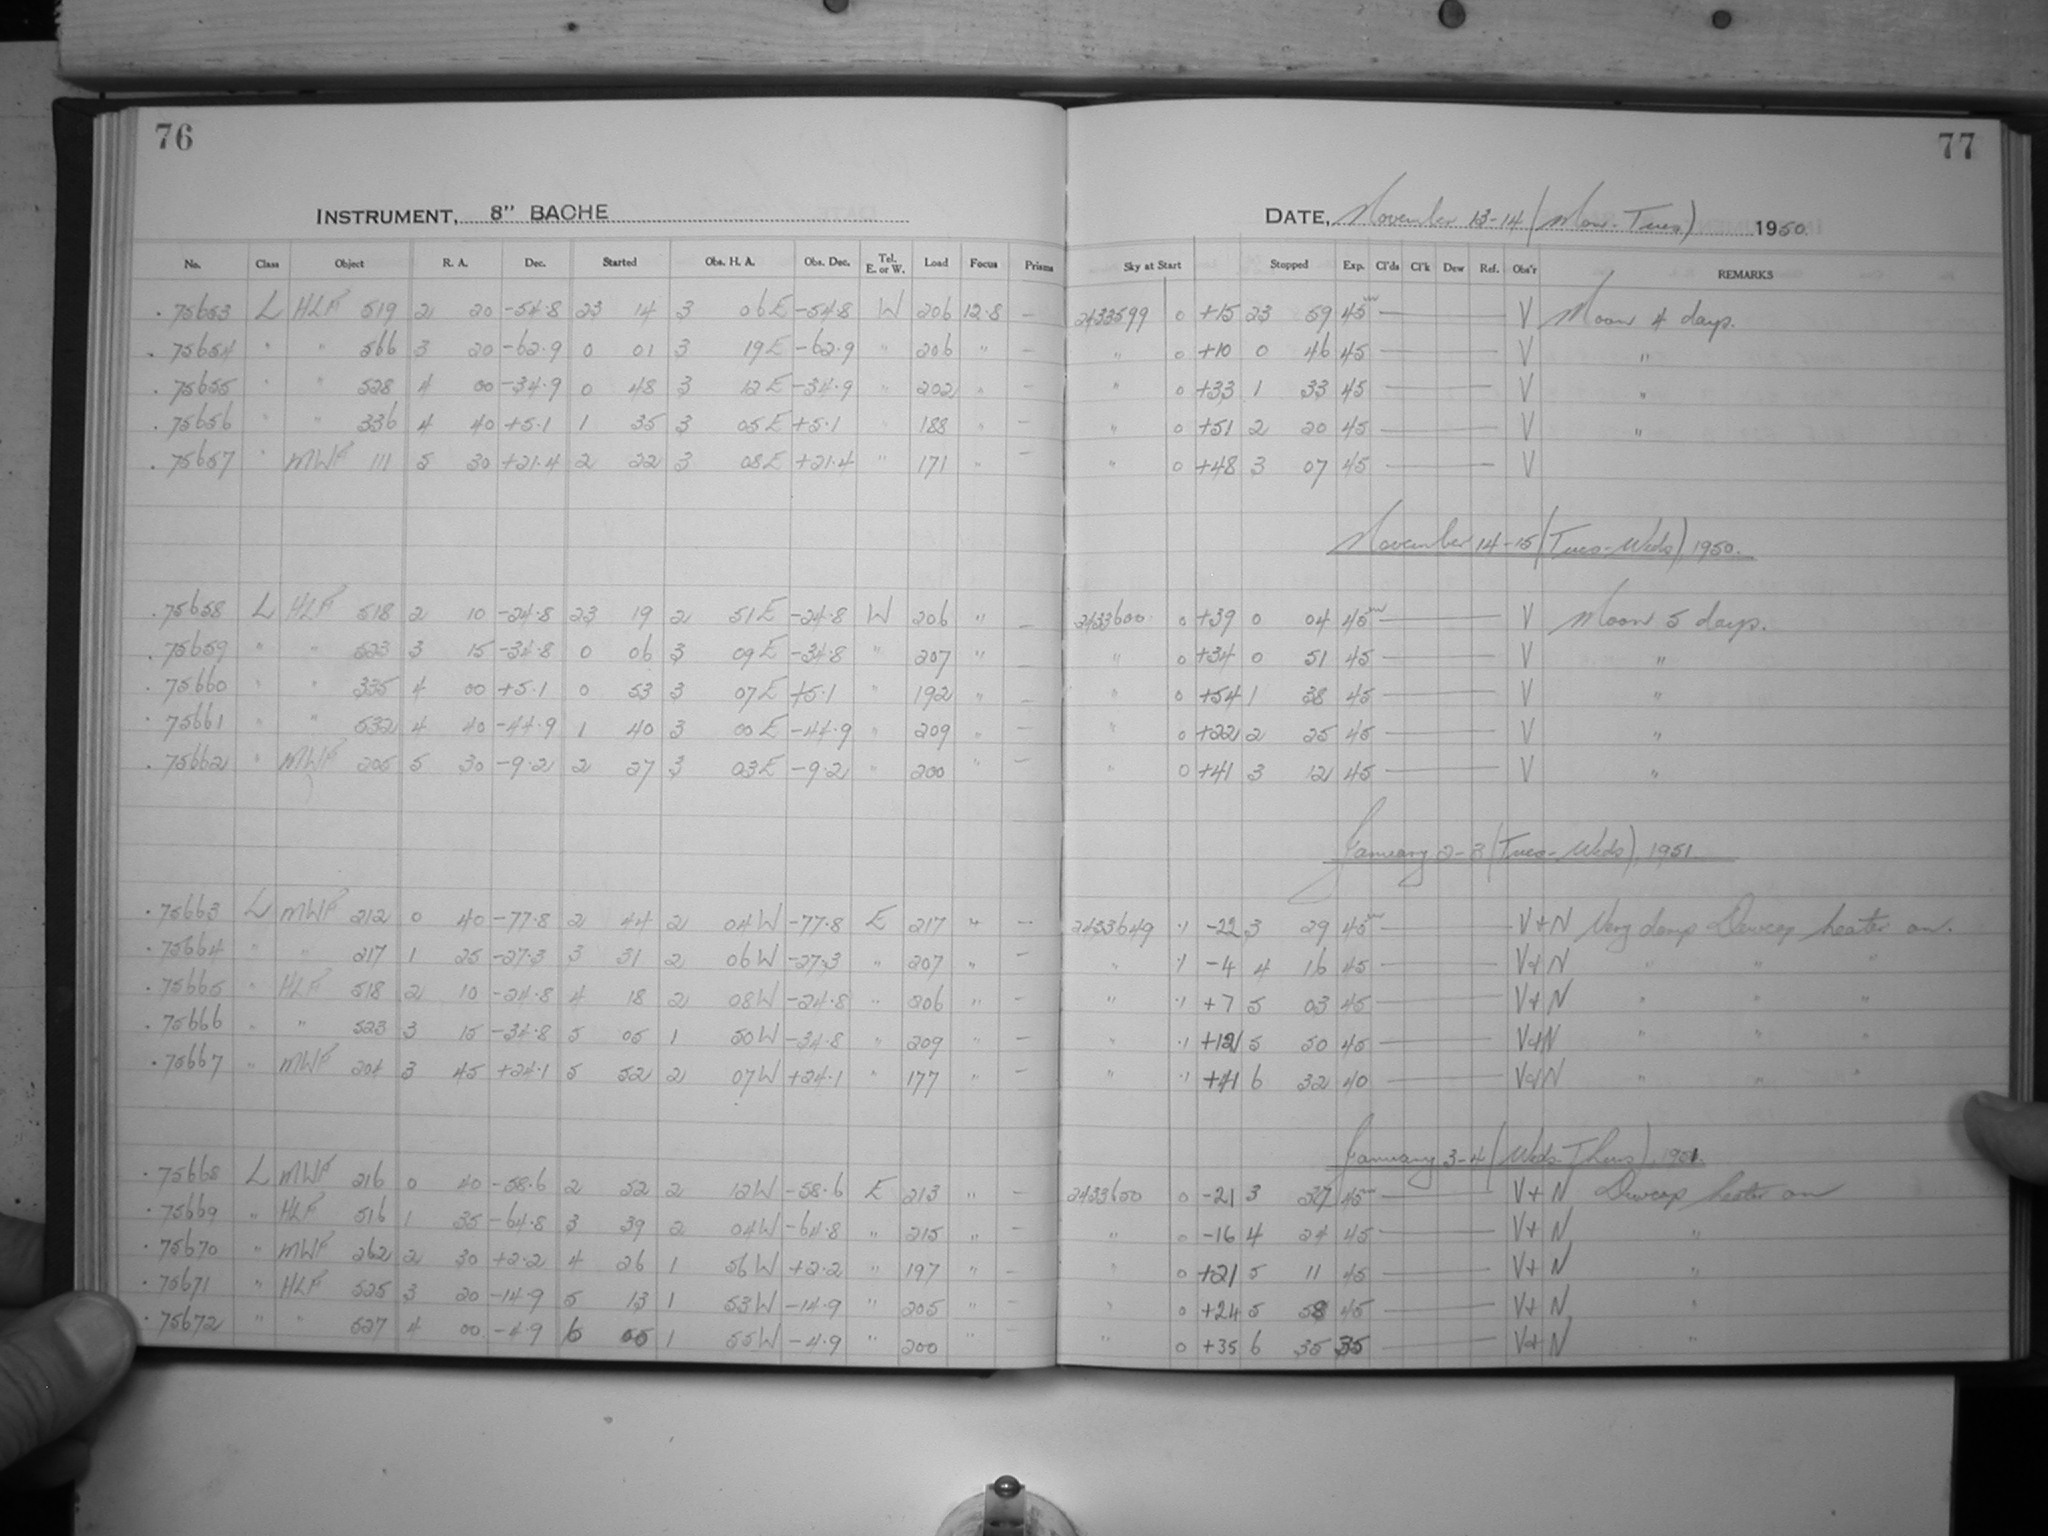 76
INSTRUMENT, 8" BACHE
No. Class Object R. A. Dec. Started Obs. H. A. Obs. Dec. Tel. E. or W. Load Focus Prisms
75653 L HLF 519 2 20 -54.8 23 14 3 06E -54.8 W 206 12.8 —
75654 " " 566 3 20 -62.9 0 01 3 19E -62.9 " 206 " —
75655 " " 528 4 00 -34.9 0 48 3 12E -34.9 " 202 " —
75656 " " 336 4 40 +5.1 1 35 3 05E +5.1 " 188 " —
75657 " MWF 111 5 30 +21.4 2 22 3 08E +21.4 " 171 " —
75658 L HLF 518 2 10 -24.8 23 19 2 51E -24.8 W 206 " —
75659 " " 523 3 15 -34.8 0 06 3 09E -34.8 " 207 " —
75660 " " 335 4 00 +5.1 0 53 3 07E +5.1 " 192 " —
75661 " " 532 4 40 -44.9 1 40 3 00E -44.9 " 209 " —
75662 " MWF 205 5 30 -9.2 2 27 3 03E -9.2 " 200 " —
75663 L MWF 212 0 40 -77.8 2 44 2 04W -77.8 E 217 " —
75664 " " 217 1 25 -27.3 3 31 2 06W -27.3 " 207 " —
75665 " HLF 518 2 10 -24.8 4 18 2 08W -24.8 " 206 " —
75666 " " 523 3 15 -34.8 5 05 1 50W -34.8 " 209 " —
75667 " MWF 204 3 45 +24.1 5 52 2 07W +24.1 " 177 " —
75668 L MWF 216 0 40 -58.6 2 52 2 12W -58.6 E 213 " —
75669 " HLF 516 1 35 -64.8 3 39 2 04W -64.8 " 215 " —
75670 " MWF 262 2 30 +2.2 4 26 1 56W +2.2 " 197 " —
75671 " HLF 525 3 20 -14.9 5 13 1 53W -14.9 " 205 " —
75672 " " 527 4 00 -4.9 6 1 55W -4.9 " 200 " —
77
DATE, November 13-14 (Mon-Tues) 1950.
Sky at Start Stopped Exp. Cl'ds Cl'k Dew Ref. Obs'r REMARKS
2433599 0 +15 23 59 45 V Moon 4 days.
" 0 +10 0 46 45 V "
" 0 +33 1 33 45 V "
" 0 +51 2 20 45 V "
" 0 +48 3 07 45 V
November 14-15 (Tues-Weds), 1950.
2433600 0 +39 0 04 45 V Moon 5 days.
" 0 +34 0 51 45 V "
" 0 +54 1 38 45 V "
" 0 +22 2 25 45 V "
" 0 +41 3 12 45 V "
January 2-3 (Tues-Weds), 1951.
2433649 .1 -22 3 29 45 V+N Very damp Dewcap heater on.
" .1 -4 4 16 45 V+N " " "
" .1 +7 5 03 45 V+N " " "
" .1 +12 5 50 45 V+N " " "
" .1 +41 6 32 40 V+N " " "
January 3-4 (Weds-Thurs), 1951.
2433650 0 -21 3 37 45 V+N Dewcap heater on
" 0 -16 4 24 45 V+N "
" 0 +21 5 11 45 V+N "
" 0 +24 5 58 45 V+N "
" 0 +35 6 35 35 V+N "